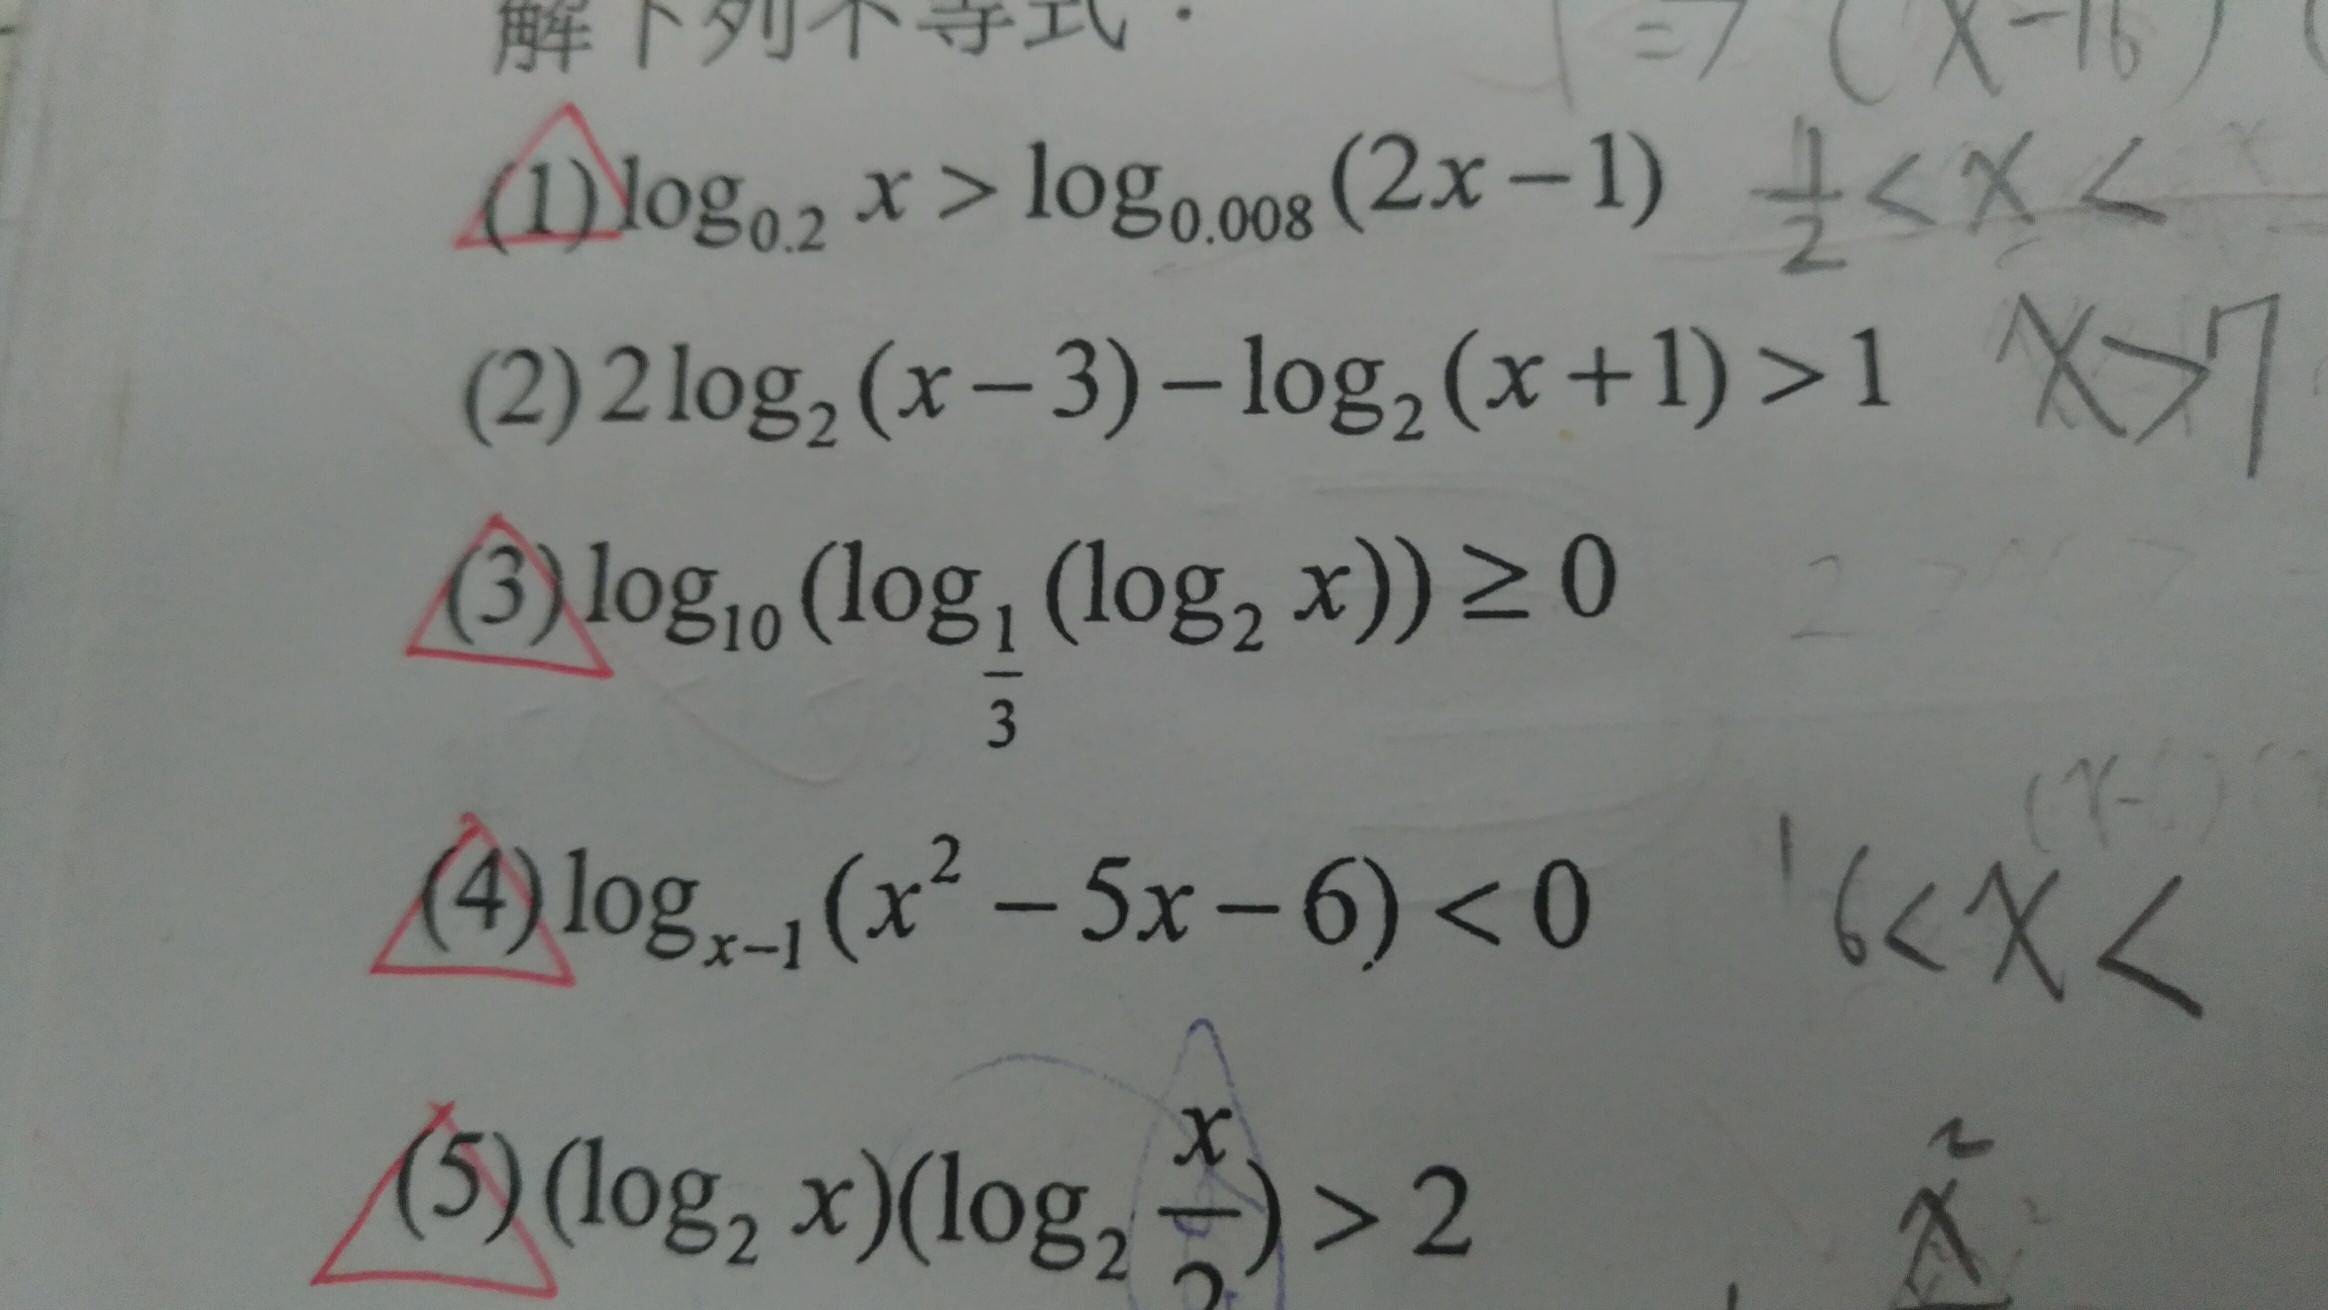 解下列不等式：
⇒ (x-16) (
(1) log₀.₂ x > log₀.₀₀₈ (2x-1) 1/2 < x <
(2) 2log₂ (x-3) - log₂ (x+1) > 1 x>7
(3) log₁₀ (log_{1/3} (log₂ x)) ≥ 0
(4) log_{x-1} (x² - 5x - 6) < 0 6 < x <
(5) (log₂ x)(log₂ x/2) > 2